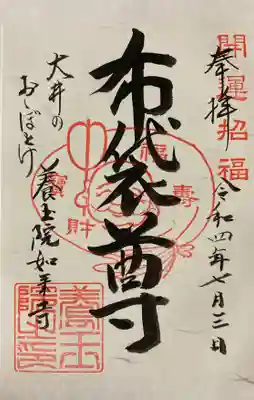 開運招福
奉拝
令和四年七月三日
布袋尊
福
壽
財
寳
大井の
おゝぼとけ
養玉院如来寺
養玉
院印